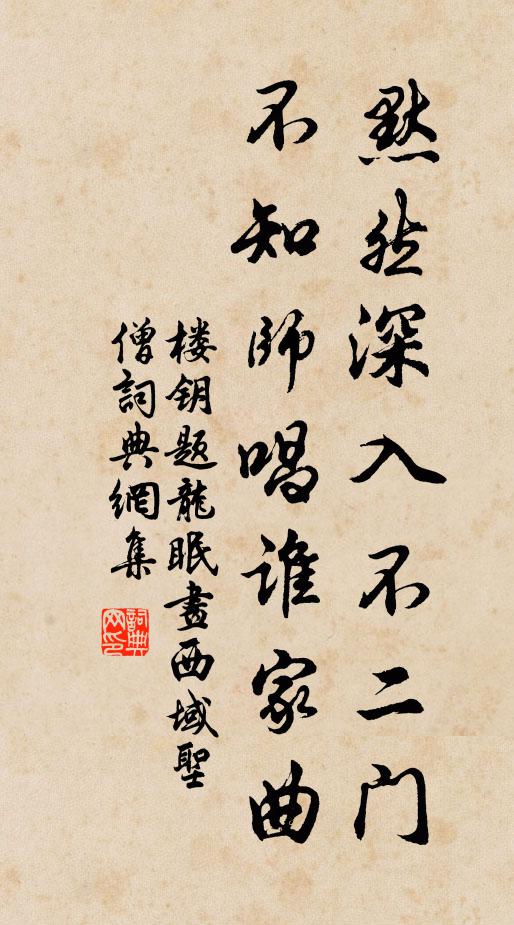 默然深入不二门
不知师唱谁家曲
楼钥题龍眠畫西域聖
僧詞典網集
詞典网印